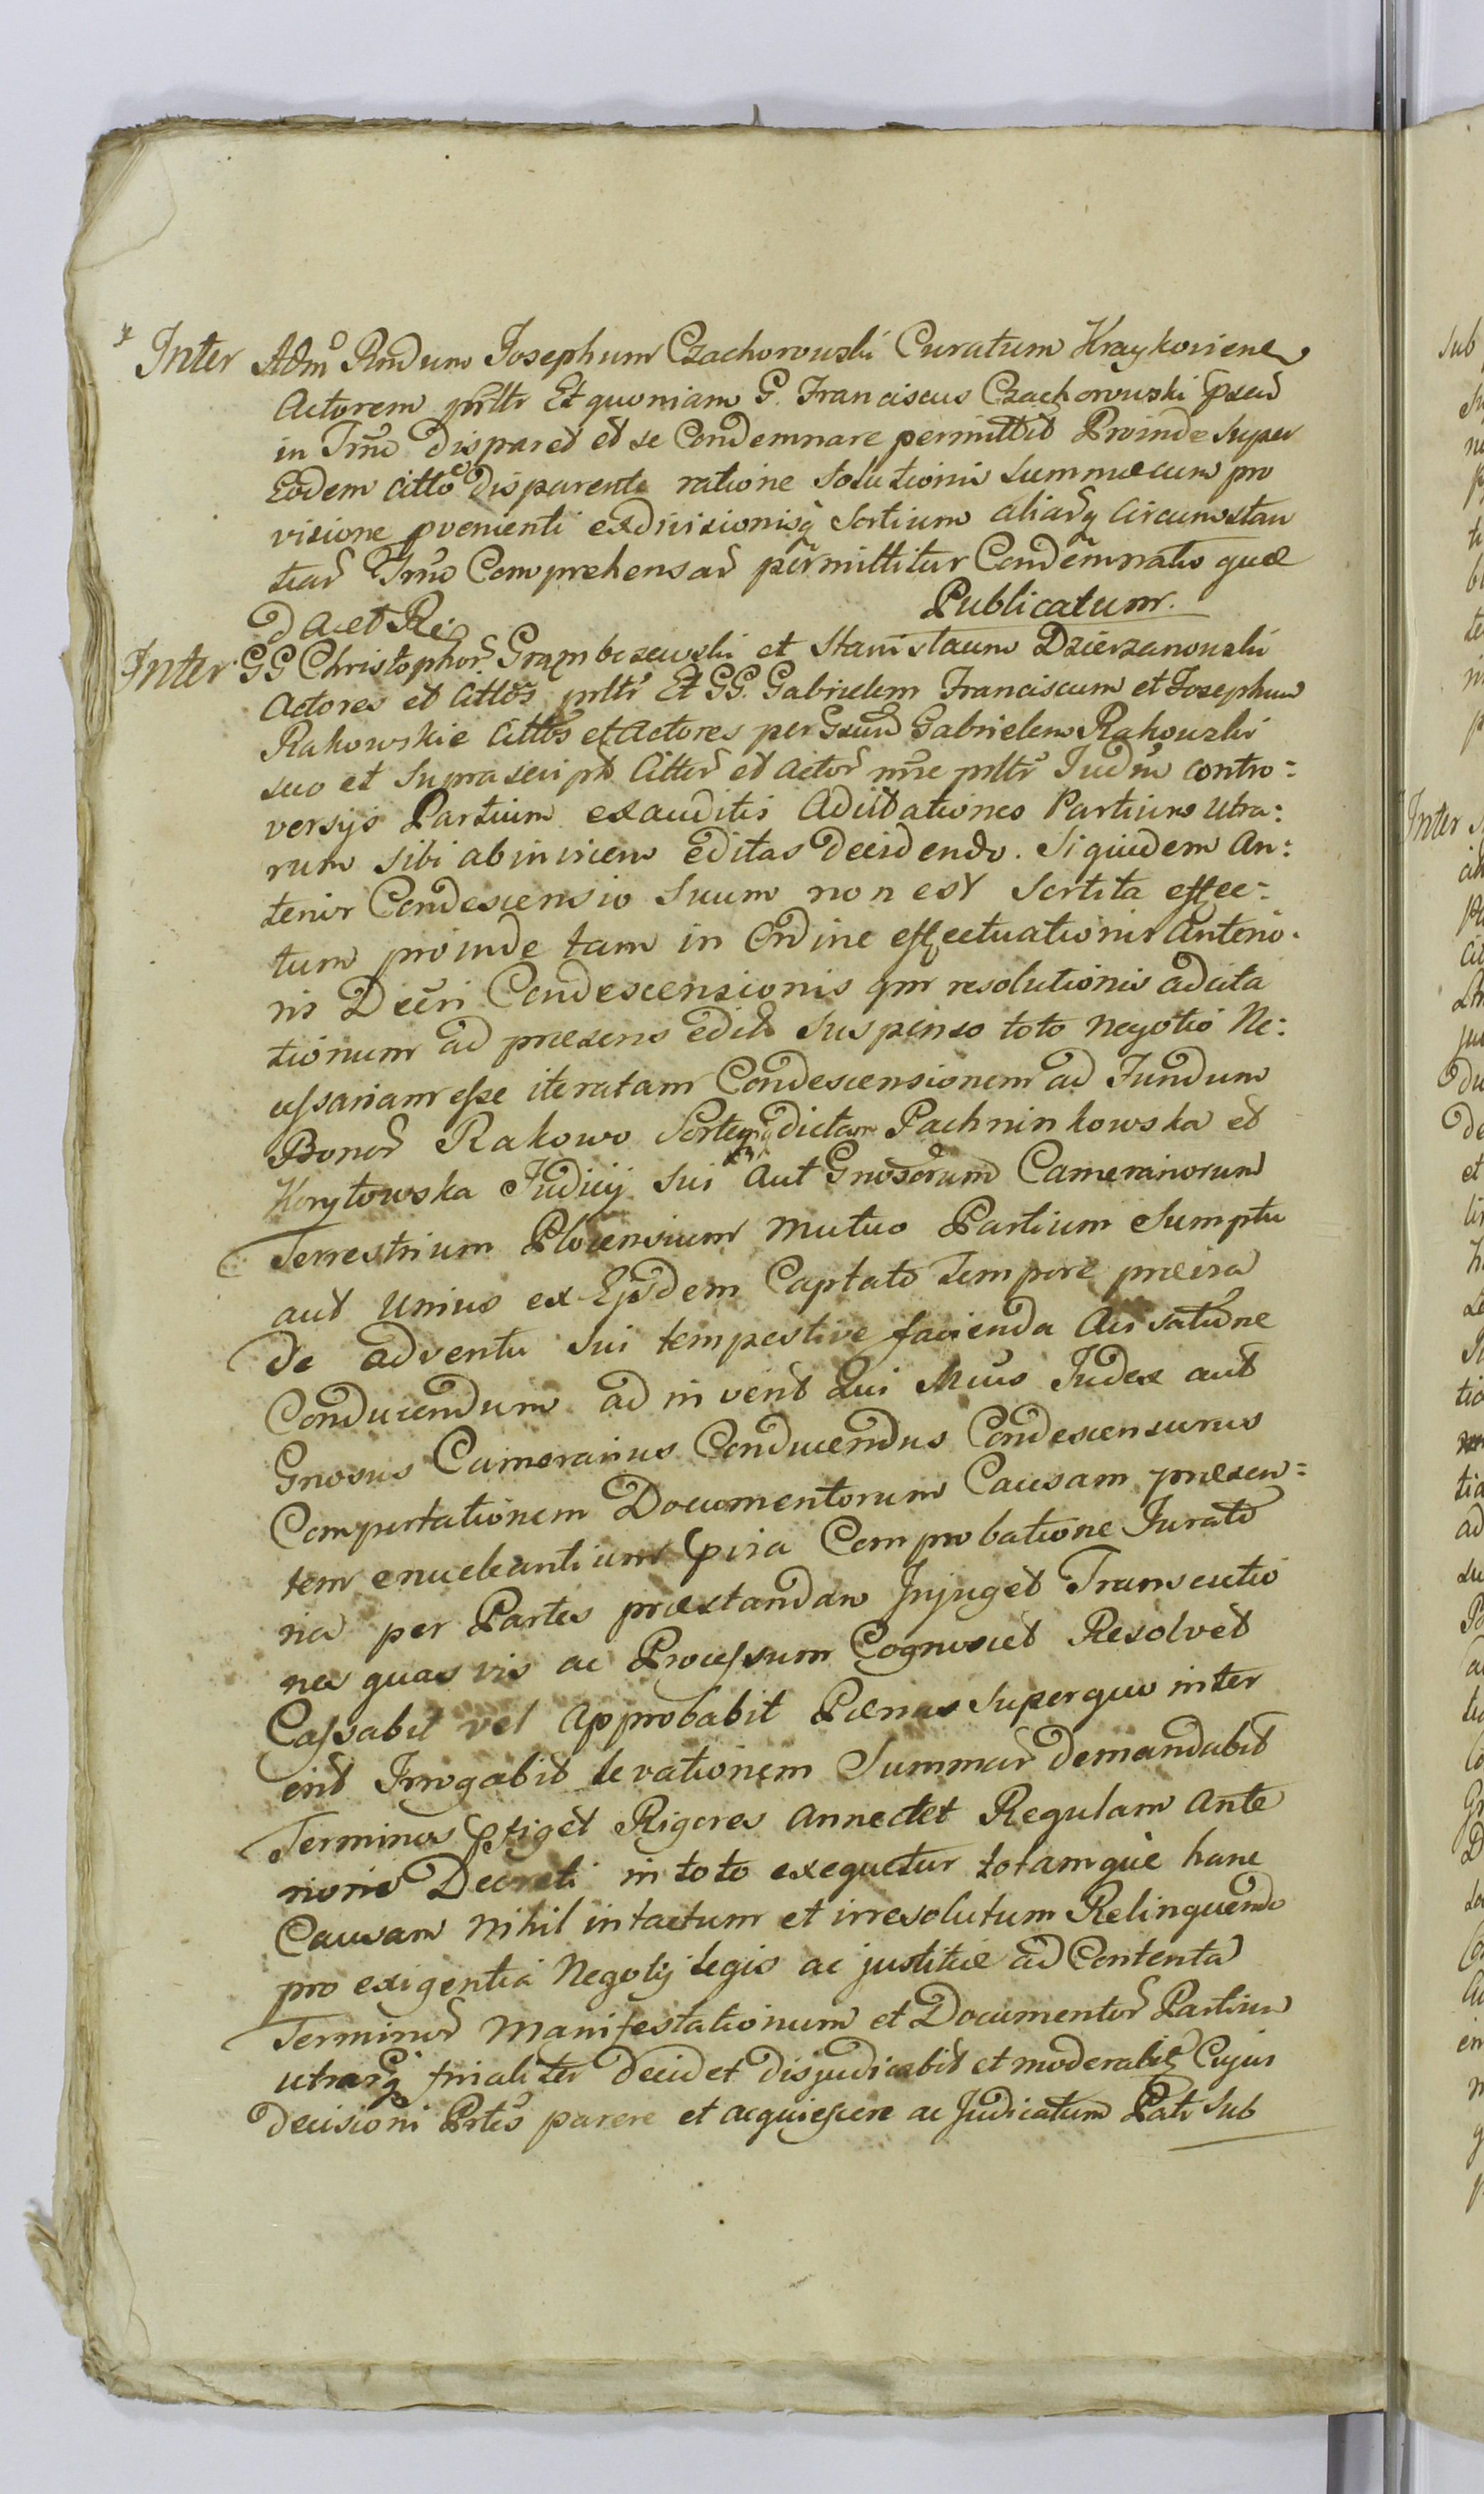 Inter Adm Rndum Josephum Czachorowski Curatum Kraykoviens
Actorem prsttr Et quoniam G. Franciscus Czachorowski
in Trno disparet et se Condemnare permittit Proinde super
Eodem Citto disparente ratione solutionis summae cum pro
visione pvenienti exdivisionisq Sortium aliarq Circumstan
tiar Trno Comprehensar permittitur Condemnatio quae
Publicatum.
D Act Rei
Inter GG Christophor Grambczewski et Stanislaum Dzierzanowski
Actores et Cittos prsttr Et GG. Gabrielem Franciscum et Josephum
Rakowskie Cittos et Actores per Gsum Gabrielem Rakowski
suo et suprascript Cittor et Actor nne prsttr Judm contro=
versys Partium exauditis Adcitationes Partium utra=
rum sibi abinvicem editas decidendo. Siquidem An=
terior Condescensio suum non est Sortita effec=
tum proinde tam in Ordine effectuationis Anterio=
ris Decri Condescensionis qm resolutionis adcita
tionum ad praesens edit Suspenso toto negotio Ne=
cessariam esse iteratam Condescensionem ad Fundum
Bonor Rakowo Sortem dictam Pachninkowska et
Korytowska Judicy sui Aut Gnosorum Camerariorum
Terrestrium Plocensium mutuo Partium sumptu
aut unius ex Ejsdem Captato Tempore praevia
de adventu sui tempestive facienda Avisatione
Conducendum adinvenit Qui Mcus Judex aut
Gnosus Camerarius Conducendus Condescensurus
Comportationem Documentorum Causam praesen=
tem enucleantium pvia Comprobatione Jurato
ria per Partes praestandam Injuget Transcutio
nes quasvis ac Processum Cognoscet Resolvet
Cassabit vel Approbabit Paenas superquo inter
erit Irrogabit levationem Summar demandabit
Terminos pfiget Rigores annectet Regulam Ante
rioris Decreti in toto exequetur totamque hanc
Causam nihil intactum et irresolutum Relinquendo
pro exigentia Negoty Legis ac justitiae ad Contenta
Terminor Manifestationum et Documentor Partium
utrarq finaliter decidet disjudicabit et moderabit Cujus
decisioni Prtes parere et acquiescere ac Judicatum Pati sub